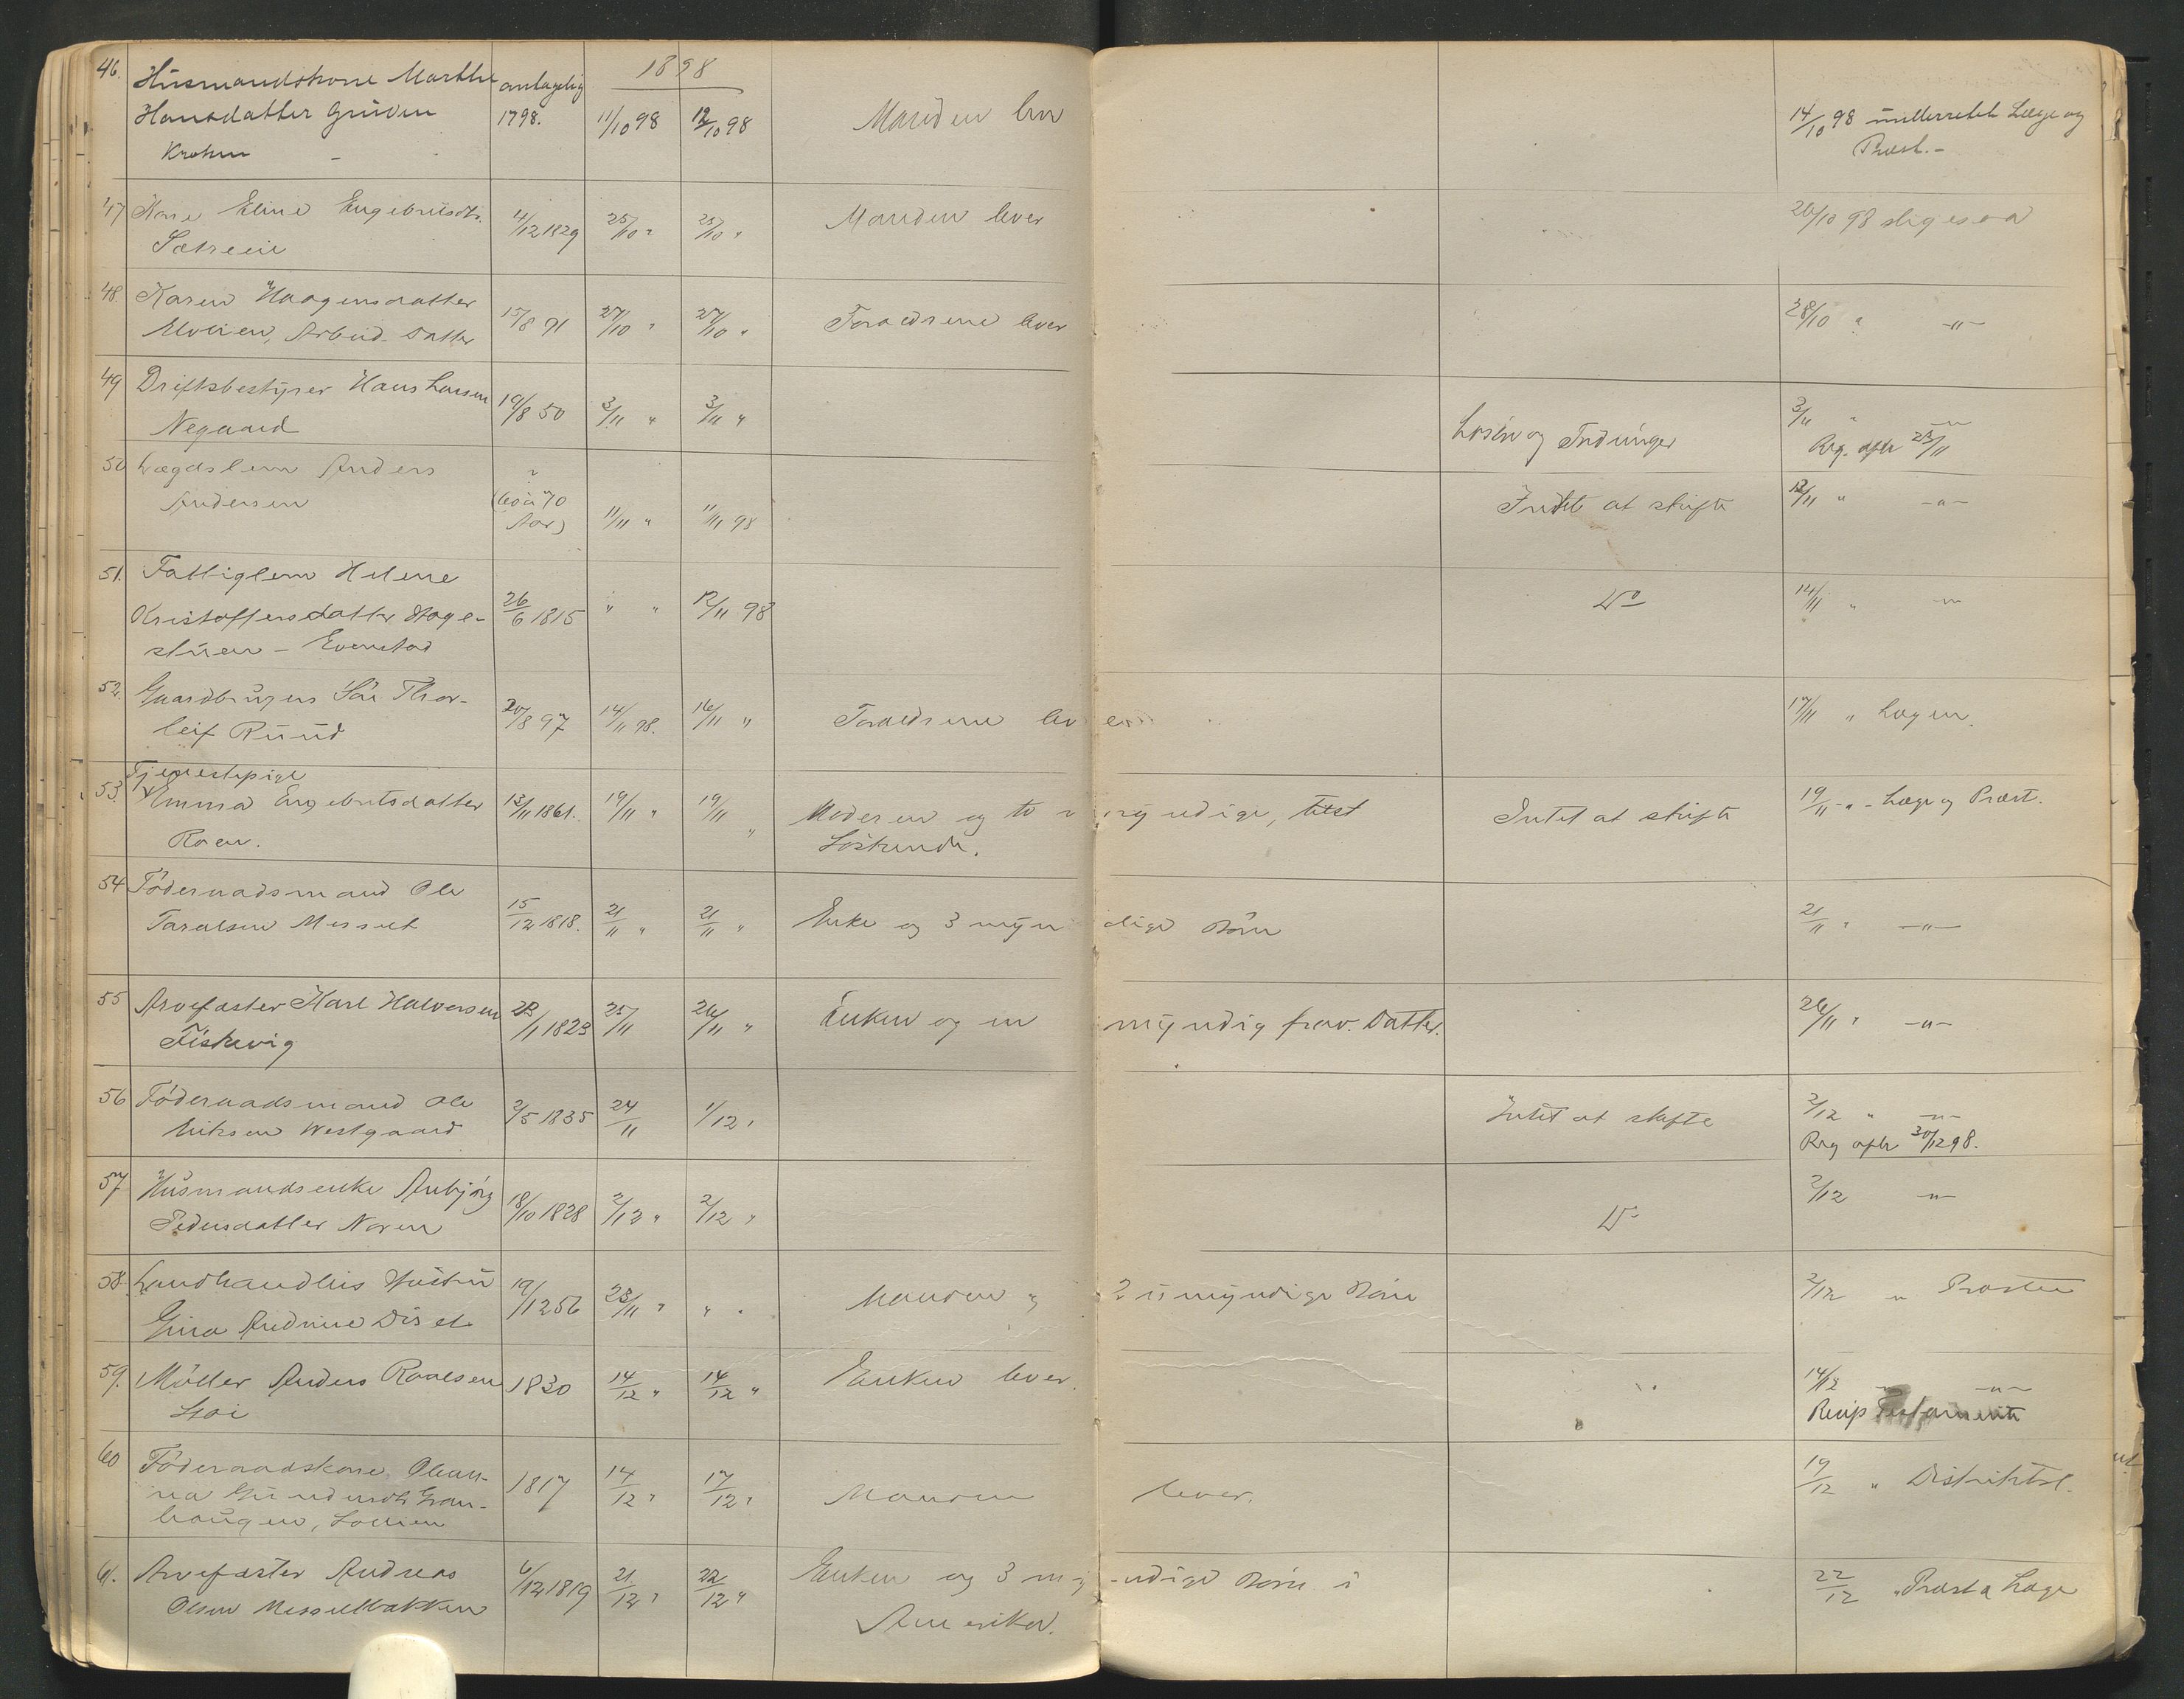 1898
46. Husmandskone Marthe antagelig
Hansdatter Gruven 1798. 11/10 98 12/10 98 Manden lever 14/10 98 underrettet Læge og
Kroken - Præst.-
47 Kone Eline Engebretsdtr. 4/12 1829 25/10 " 25/10 " Manden lever 26/10 98 ligesaa
Sætreeie
48. Karen Haagensdatter 15/8 91 27/10 " 27/10 " Forældrene lever 28/10 " -"-
Arbeid. Datter
49 Driftsbestyrer Hans Larsen 19/8 50 3/11 " 3/11 " Løsøre og 3/11 " -"-
Negaard Reg. afh 23/11
50 Lægdslem Anders ?
Andersen (60 à 70 11/11 " 11/11 98 Intet at skifte 12/11 " -"-
Aar)
51. Fattiglem Helene
Kristoffersdatter Hage- 26/6 1815 " " 12/11 98 Do 14/11 " -"-
stuen - Evenstad
52. Gaardbrugers Søn Thor- 20/8 97 14/11 98. 16/11 " Forældrene lever 17/11 " Lægen.
leif Ruud
53. Tjenestepige
Emma Engebretsdatter 13/11 1861. 19/11 " 19/11 " Moderen og to myndige, Intet at skifte 19/11 -"- Læge og Præst.
Roen. Søskende.
54 Føderaadsmand Ole
Taralsen Messelt 15/12 1818. 21/11 " 21/11 " Enke og 3 myndige Børn 21/11 " -"-
55 Arvefæster Karl Halvorsen 23/1 1823 25/11 26/11 " Enken og en myndig frav. Datter. 26/11 " -"-
Fiskevig
56 Føderaadsmand Ole 2/5 1835 24/11 1/12 " Intet at skifte 2/12 " -"-
Eriksen Westgaard Reg afh 30/12 98.
57 Husmandsenke Anbjørg 18/10 1828 2/12 " 2/12 " Do 2/12 -"-
Pedersdatter Noren
58. Landhandlers Hustru 19/12 56 23/11 " " " Manden og 2 umyndige Børn 2/12 " Præsten
Gina Andrine Diset
59. Møller Anders Roalsen 1830 14/12 " 14/12 " Enken lever. 14/12 " -"-
Moi Testamente
60 Føderaadskone Olean-
na Gundersdtr Gran- 1817 14/12 " 17/12 " Manden lever. 19/12 " Distriktsl.
haugen,
61. Arvefæster Andreas 6/12 1819 21/12 " 22/12 " Enken og 3 myndige Børn i 22/12 " Præst & Læge
Olsen Messeltbakken Amerika.